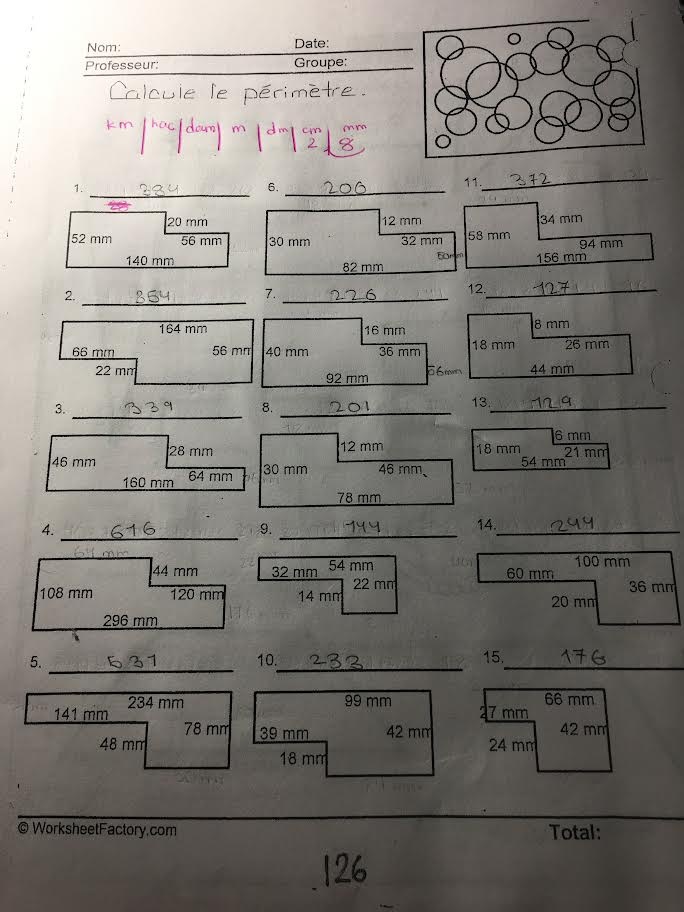 Nom: Date:
Professeur: Groupe:
Calcule le périmètre.
km | hac | dam | m | dm | cm | mm
2 8
1. 384 6. 206 11. 372
20 mm 12 mm 34 mm
52 mm 56 mm 30 mm 32 mm 58 mm 94 mm
140 mm 82 mm 156 mm
2. 354 7. 226 12. 127
164 mm 16 mm 8 mm
66 mm 56 mm 40 mm 36 mm 18 mm 26 mm
22 mm 92 mm 44 mm
3. 339 8. 201 13. 129
28 mm 12 mm 6 mm
46 mm 64 mm 30 mm 46 mm 18 mm 21 mm
160 mm 78 mm 54 mm
4. 616 9. 144 14. 244
44 mm 32 mm 54 mm 60 mm 100 mm
108 mm 120 mm 14 mm 22 mm 20 mm 36 mm
296 mm
5. 531 10. 233 15. 176
234 mm 99 mm 66 mm
141 mm 78 mm 39 mm 42 mm 27 mm 42 mm
48 mm 18 mm 24 mm
© WorksheetFactory.com Total:
126